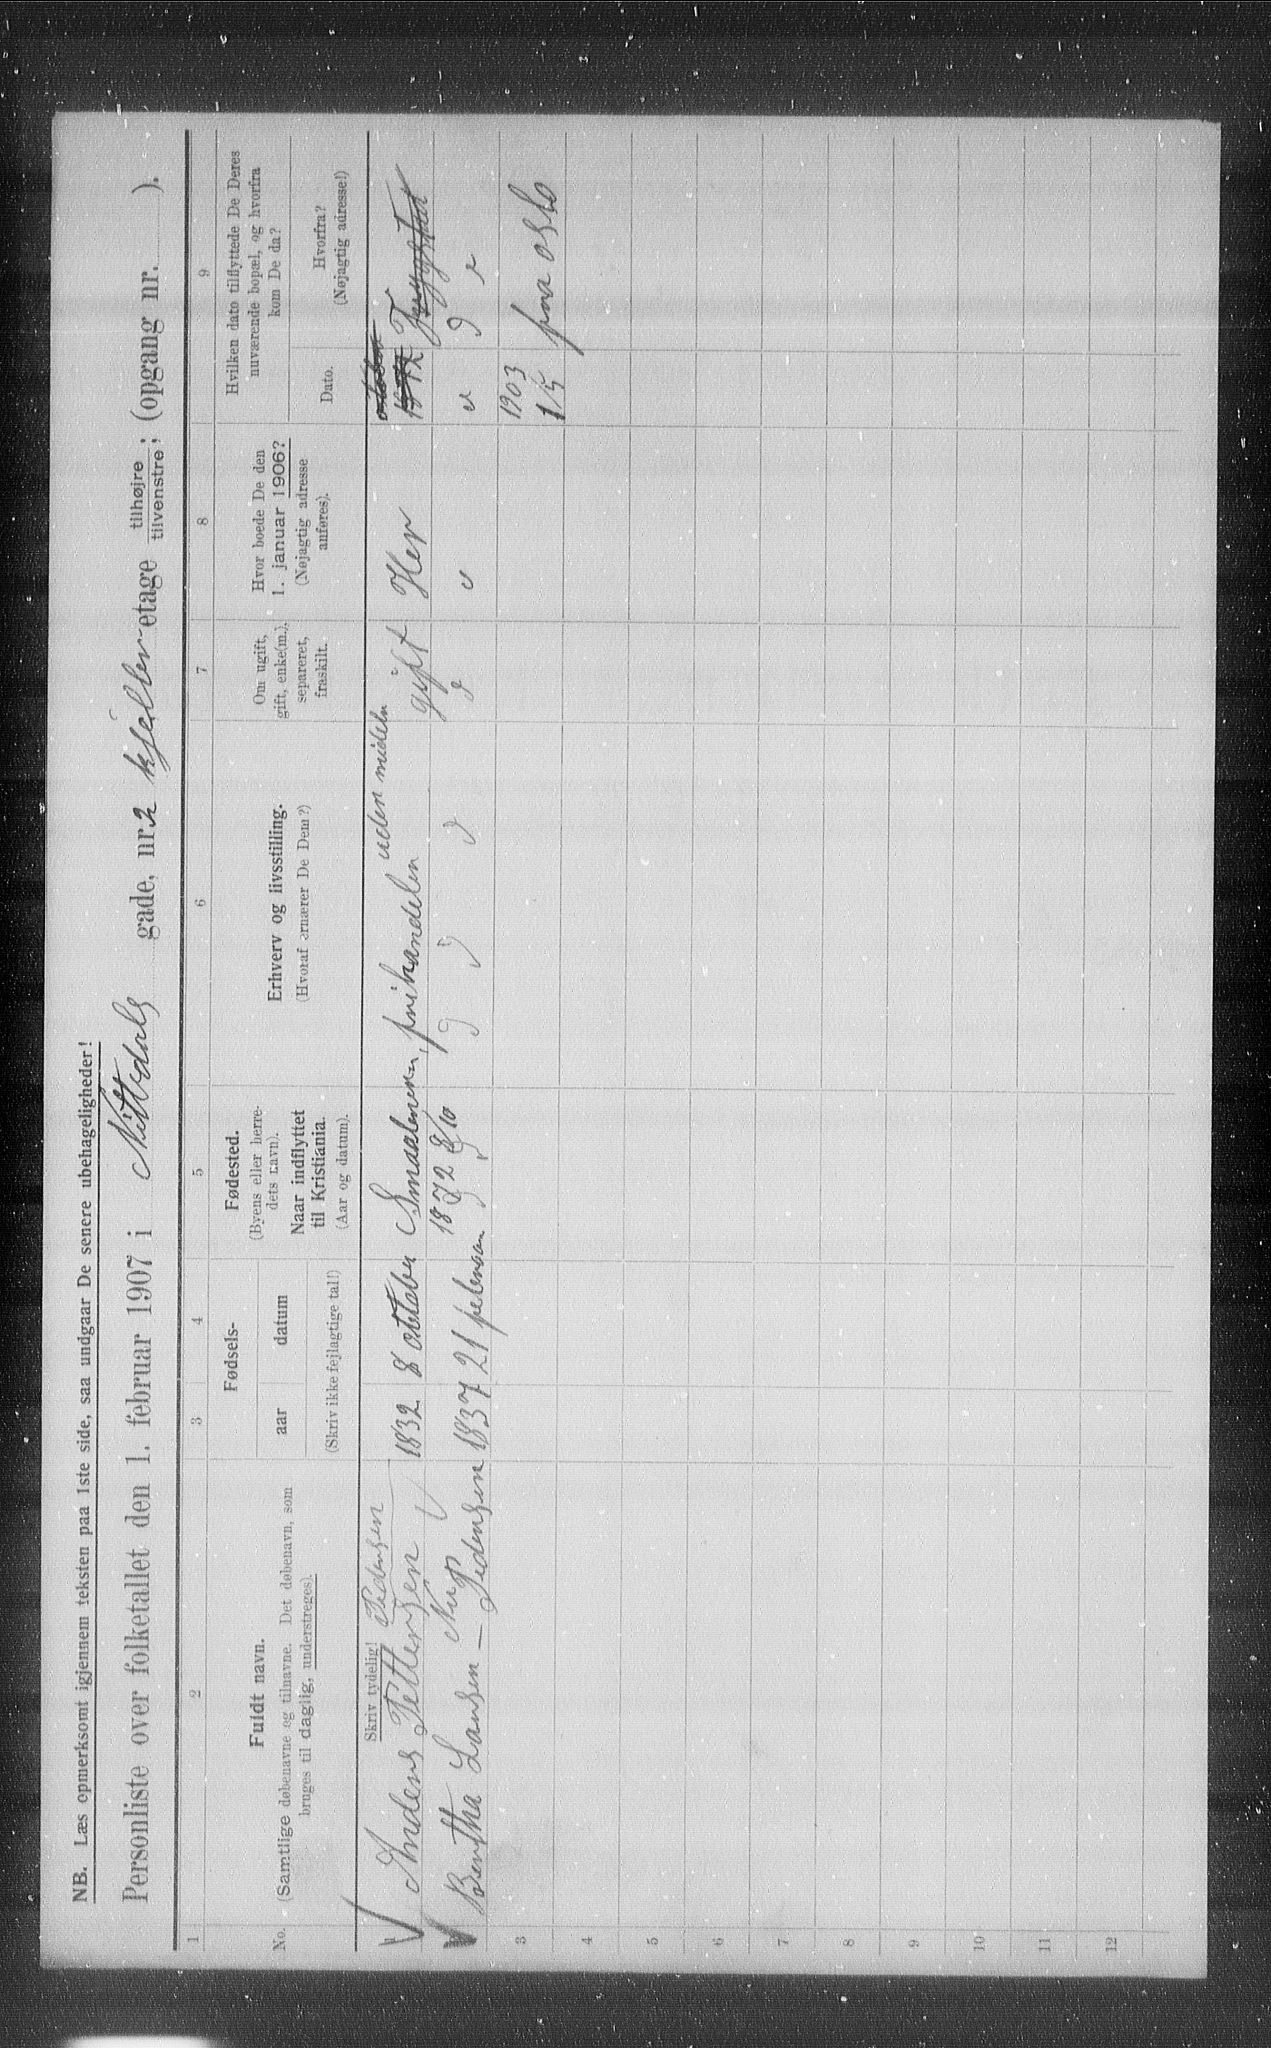 NB. Læs opmerksomt igjennem teksten paa 1ste side, saa undgaar De senere ubehageligheder!
Personliste over folketallet den 1. februar 1907 i Nittedals gade, nr. 2 kjelder etage tilhøjre / tilvenstre; (opgang nr. ).
1 2 3 4 5 6 7 8 9
No.
Fuldt navn.
(Samtlige døbenavne og tilnavne. Det døbenavn, som
bruges til daglig, understreges).
Fødsels-
aar datum
(Skriv ikke fejlagtige tal!)
Fødested.
(Byens eller herre-
dets navn).
Naar indflyttet
til Kristiania.
(Aar og datum).
Erhverv og livsstilling.
(Hvoraf ernærer De Dem?)
Om ugift,
gift, enke(m.),
separeret,
fraskilt.
Hvor boede De den
1. januar 1906?
(Nøjagtig adresse
anføres).
Hvilken dato tilflyttede De Deres
nuværende bopæl, og hvorfra
kom De da?
Dato.
Hvorfra?
(Nøjagtig adresse!)
Skriv tydelig! Pedersen uden mideln oktober
1 Anders Pettersen 1832 8 oktober Smaalenene, frihandelen gift Her 1872 Trygstad
1872 8/10
2 Bertha Larsen — Pedersen 1837 21 februar
3 1903
1/5 fra oslo
4
5
6
7
8
9
10
11
12